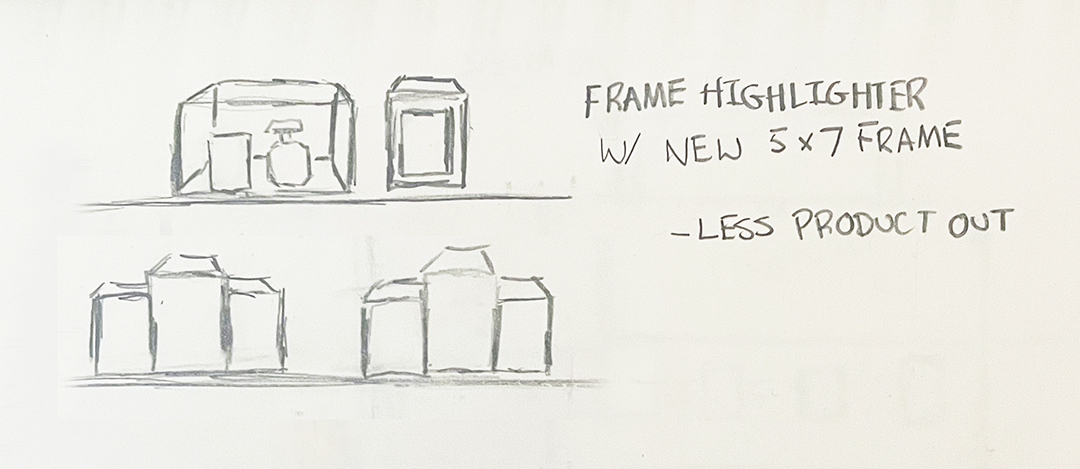 FRAME HIGHLIGHTER
W/ NEW 5x7 FRAME
- LESS PRODUCT OUT